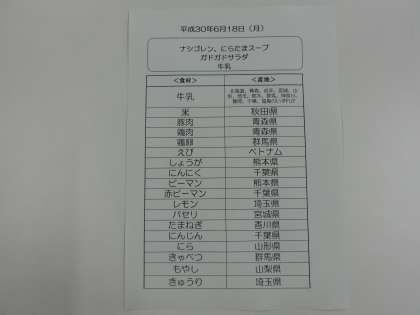 平成30年6月18日（月）
ナシゴレン、にらたまスープ
ガドガドサラダ
牛乳
＜食材＞ ＜産地＞
牛乳
米 秋田県
豚肉 青森県
鶏肉 青森県
鶏卵 群馬県
えび ベトナム
しょうが 熊本県
にんにく 千葉県
ピーマン 熊本県
赤ピーマン 千葉県
レモン 埼玉県
パセリ 宮城県
たまねぎ 香川県
にんじん 千葉県
にら 山形県
きゃべつ 群馬県
もやし 山梨県
きゅうり 埼玉県